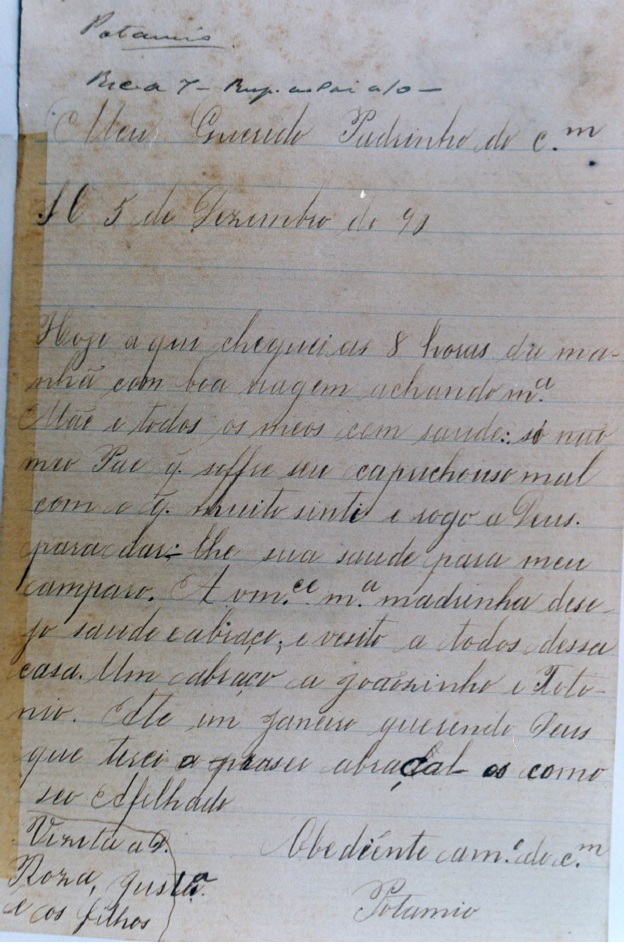 Potamio
Meu Querido Padrinho do c.m
5 de Dezembro de 90
Hoje aqui cheguei as 8 horas da ma-
nhã com boa viagem achando m.a
Mãe e todos os meos com saude: só não
meo Pae q. soffre seu caprichoso mal
com o q. muito sinti e rogo a Deus.
para dar-lhe sua saude para meu
amparo. A vm.ce m.a madrinha dese-
jo saude e abraço, e vesito a todos dessa
casa. Um abraço a Joãozinho e Toto-
nio. Ate em Janeiro querendo Deus
que terei o praser abraçal-os como
seo Afilhado
Vizita a D.
Roza, Gust.a
e os filhos
Obediente am.o do c.m
Potamio